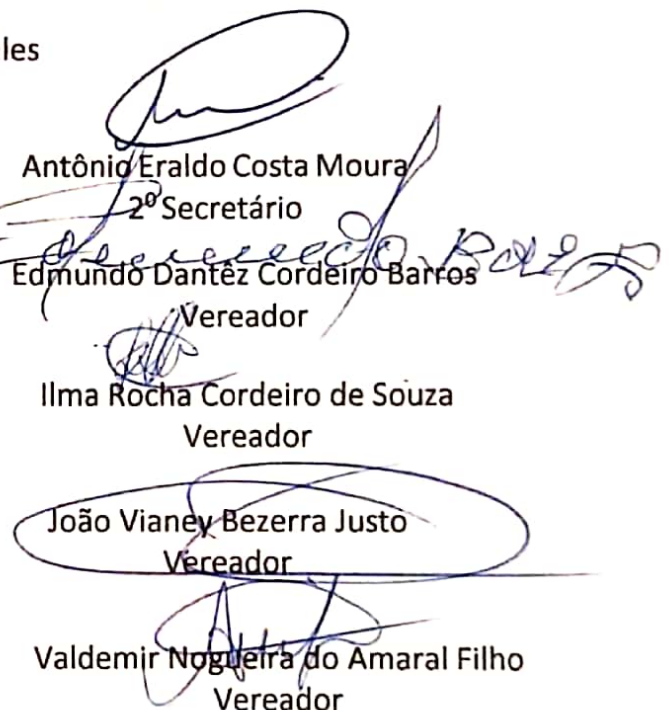 les
Antônio Eraldo Costa Moura
2º Secretário
Edmundo Dantêz Cordeiro Barros
Vereador
Ilma Rocha Cordeiro de Souza
Vereador
João Vianey Bezerra Justo
Vereador
Valdemir Nogueira do Amaral Filho
Vereador